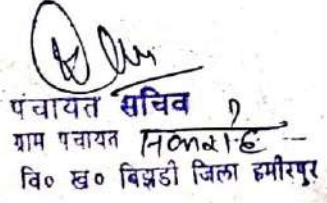 पंचायत सचिव
ग्राम पंचायत
वि० ख० बिझडी जिला हमीरपुर